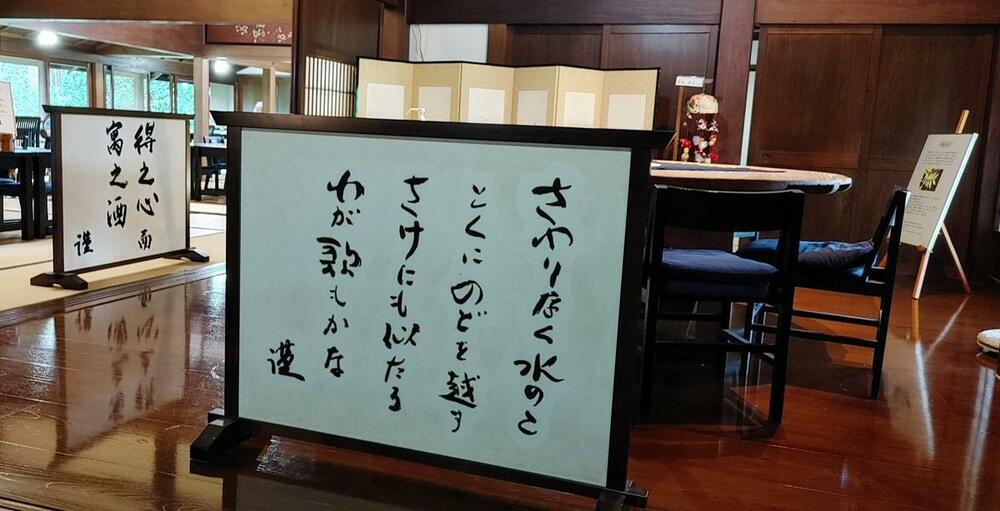 さわりなく水のこ
とくにのどを越す
さけにも似たる
わが歌もかな
謹
得之心而
寓之酒
謹